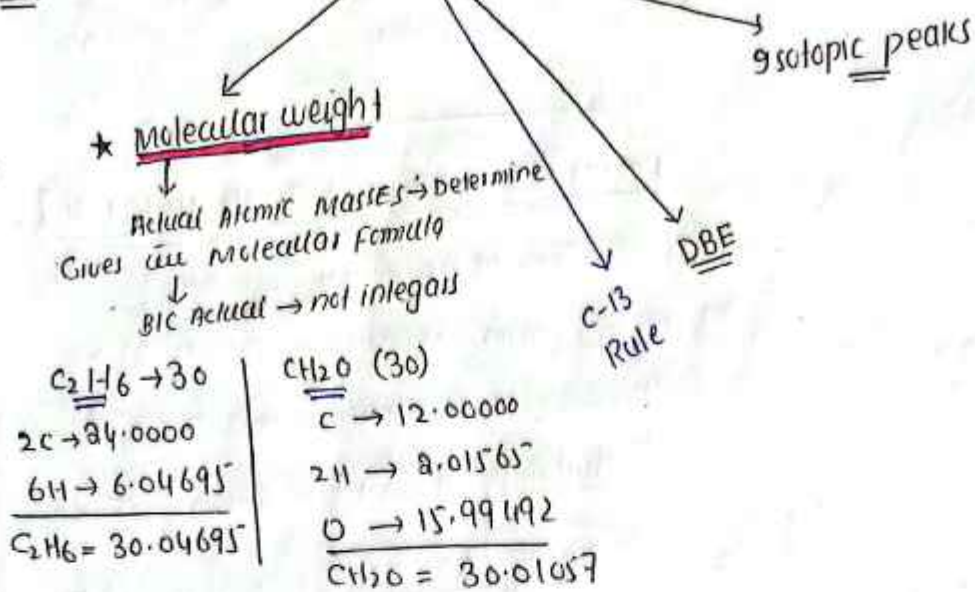 Isotopic peaks
★ Molecular weight
Actual Atomic Masses → Determine
Gives the Molecular Formula
B/C Actual → not integars
DBE
C-13
Rule
C2H6 → 30
2C → 24.0000
6H → 6.04695
C2H6 = 30.04695
CH2O (30)
C → 12.00000
2H → 2.01565
O → 15.99492
CH2O = 30.01057